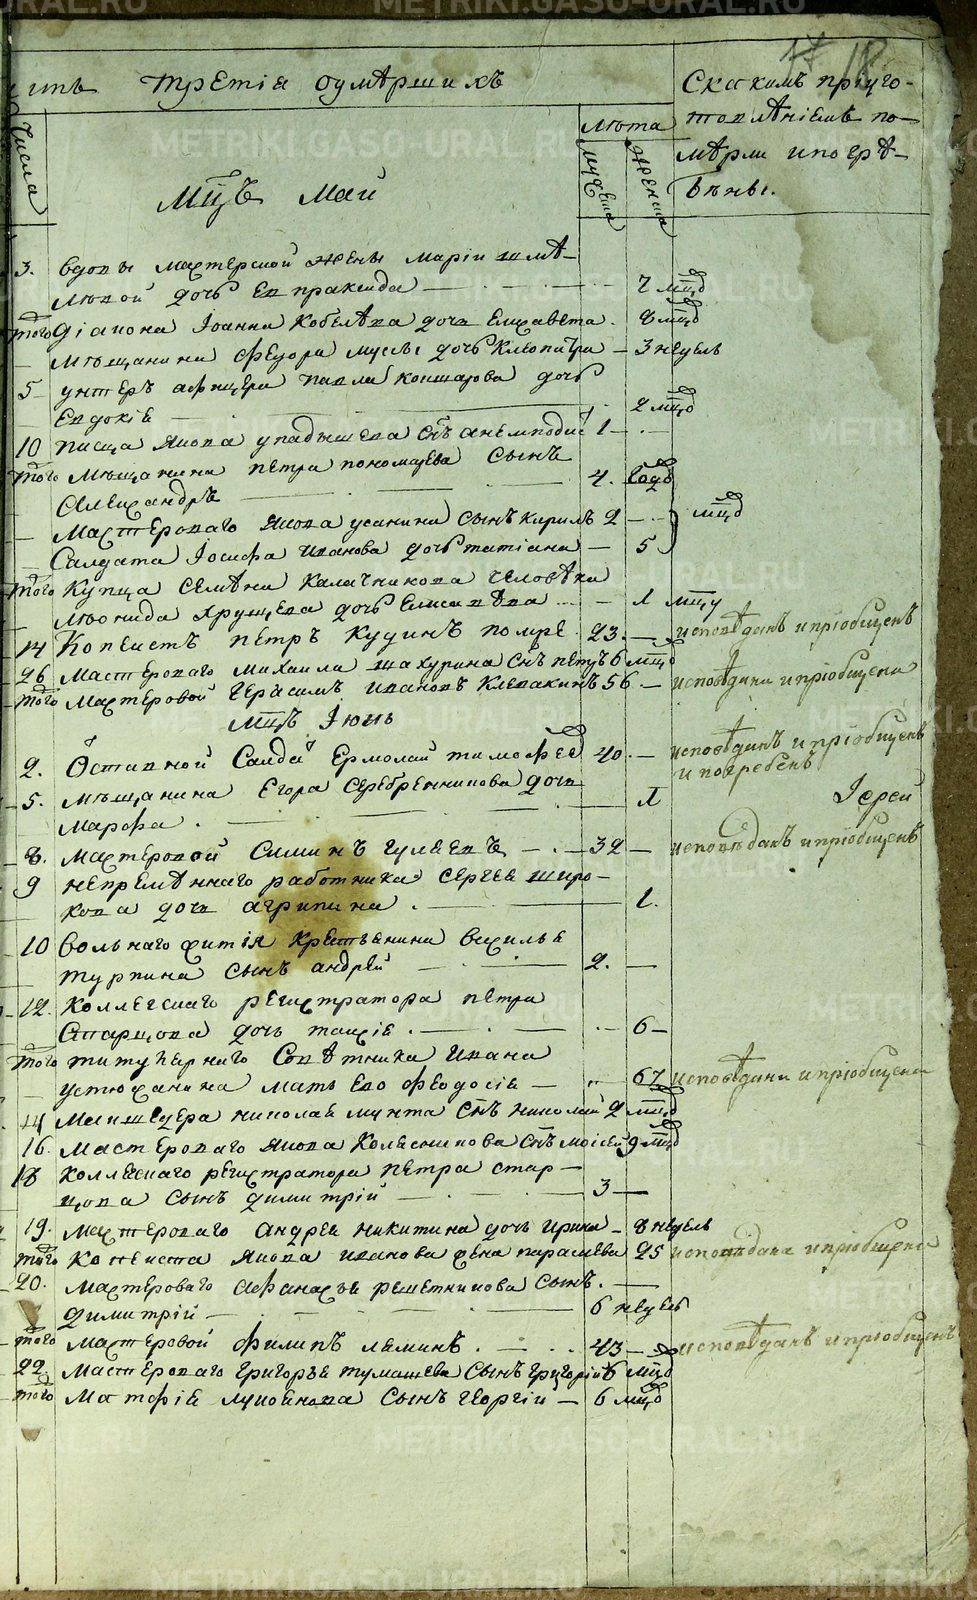 METRIKI.GASO-URAL.RU
17 18
Третія оумѣршихъ
Скакимъ пріуго-
товлѣніемъ по-
мѣрли и погрѣ-
бѣны.
Числа
Лѣта
мужеска
женска
Мцъ Май
3. вдовы мастерской жены Маріи
дочь Евпраксида — 7 мцд
того Діакона Іоанна Кобелева дочь Елисавета. 8 мцд
— мѣщанина Федора дочь Клеопатра — 3 недель
5 унтеръ афицера Павла Коншарова дочь
Евдокіе — 2 мцд
10 писца Якова упадышева Снъ анемподис 1 —
того мѣщанина петра пономарева Сынъ
Александръ — 4. годъ
— Мастероваго Якова усанина Сынъ кирилъ 2 — мцд
— Салдата Іосифа Иванова дочь татіана — 5
того Купца Семѣна Калачникова человѣка
— Лѣонида хрущева дочь Елисавѣва — 1 мцу
14 Копеистъ пѣтръ Кудинъ помре 23. — исповѣданъ и пріобщенъ
26 Мастероваго Михаила шахурина Снъ пѣтръ 6 мцд
того Мастеровой Герасимъ Ивановъ Клевакинъ 56 — исповѣдини и пріобщени
Мцъ Іюнь
2. Оставной Салда Ермолай тимофеев 40. — исповѣдинъ и пріобщенъ
и погребенъ
5. мѣщанина Егора Серебренникова дочь
Марфа. — 1
Іерей
8. Мастеровой Симинъ Гулеевъ — 32 — исповѣданъ и пріобщенъ
9 непремѣннаго работника Сергея широ-
кова дочь агрипина. — 1.
10 вольнаго житія Крестьянина василье
турпина Сынъ андрей — 2. —
12. Коллегскаго регистратора петра
Старцова дочь таисіе. — 6 —
того титулярниго Совѣтника Ивана
— устюжанина мать Ево Феодосіе — 67 исповѣдини и пріобщени
14 николае мунта Снъ николай 2 мцд
16. Мастероваго Якова Колесникова Снъ моисей 9 мцд
18 Коллегскаго регистратора петра стар-
цова Сынъ димитрій — 3 —
19. мастероваго андрея никитина дочь ирина — 8 недель
того Копеиста Якова иванова жена парасцева 25 исповѣдана и пріобщена
20. мастероваго Афанасье решетникова Сынъ. —
димитрій — 6 недель
того мастеровой Филипъ лѣминъ. — 43 — исповѣданъ и пріобщенъ
22 мастероваго Григорье тумашева Сынъ Григорій 6 мцд
того Матфіе лукоенова Сынъ Георгій — 6 мцд